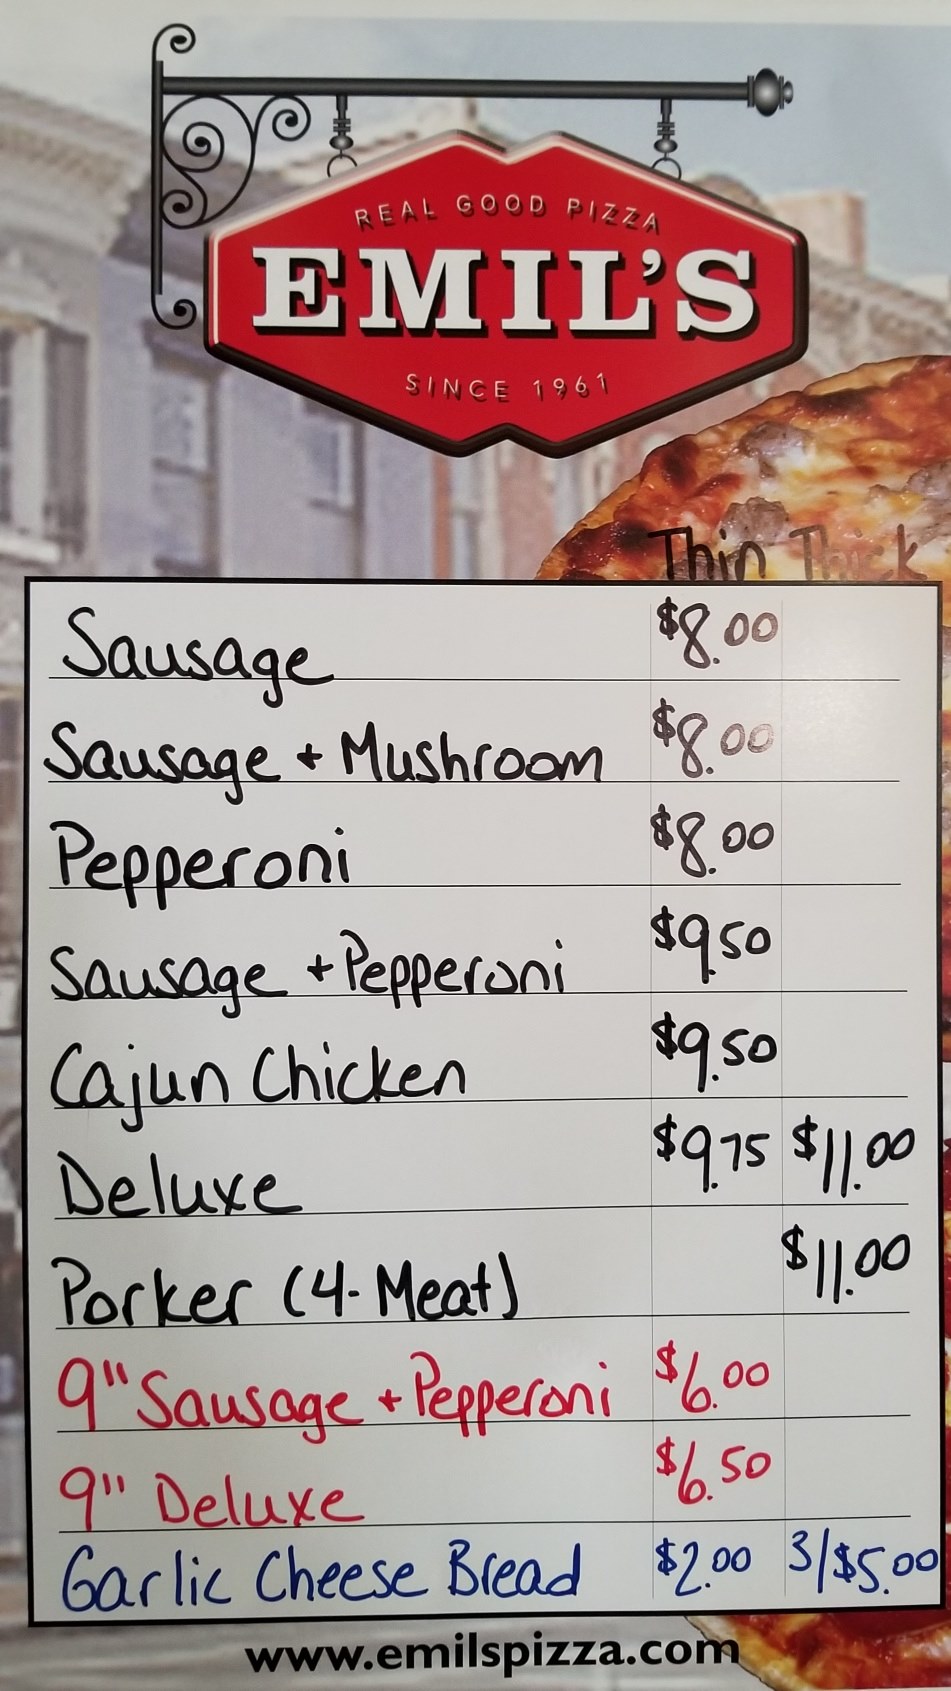 REAL GOOD PIZZA
EMIL'S
SINCE 1961
Thin Thick
Sausage $8.00
Sausage + Mushroom $8.00
Pepperoni $8.00
Sausage + Pepperoni $9.50
Cajun Chicken $9.50
Deluxe $9.75 $11.00
Porker (4-Meat) $11.00
9" Sausage + Pepperoni $6.00
9" Deluxe $6.50
Garlic Cheese Bread $2.00 3/$5.00
www.emilspizza.com